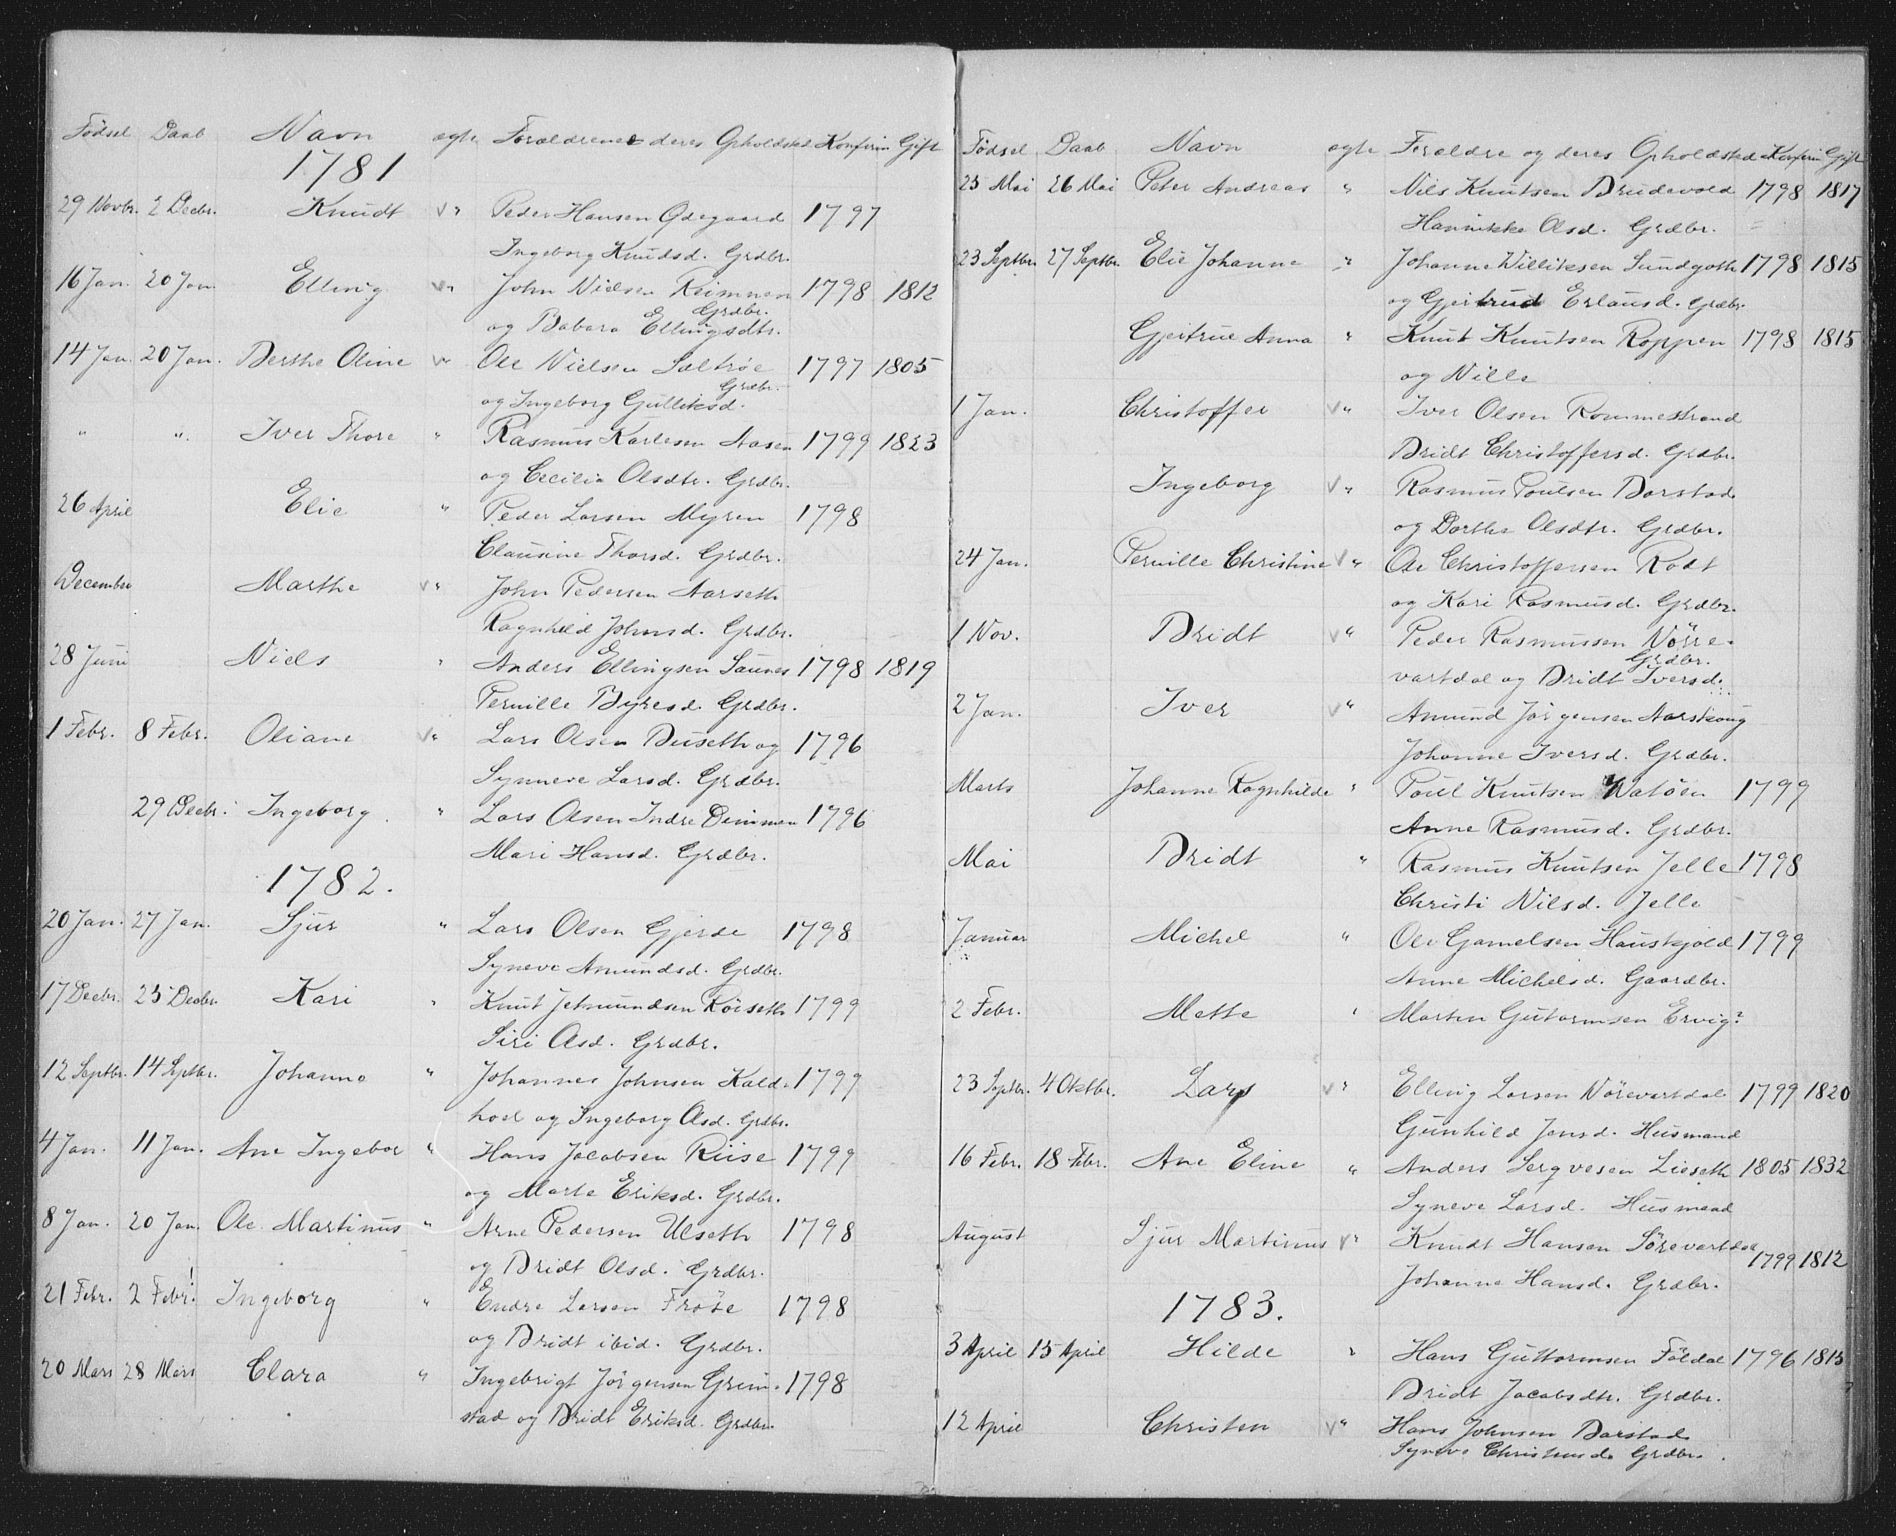 Fødsel Daab Navn ægte Forældrene deres Opholdsted Konfirm Gift
1781
29 Novbr. 2 Decbr. Knudt V " Peder Hansen Ødegaard 1797
Ingeborg Knudsd. Grdbr.
16 Jan. 20 Jan. Elling V " John Nielsen Reimnen 1798 1812
Grdbr.
og Babara Ellingsdtr.
14 Jan. 20 Jan. Berthe Oline V " Ole Nielsen Sæltrøe 1797 1805
Grdbr.
og Ingeborg Gulliksd.
" " Iver Thore " Rasmus Karlesen Aasen 1799 1823
og Cecilia Olsdtr. Grdbr.
26 April Elie " Peder Larsen Myren 1798
Clausine Thorsd. Grdbr.
December Marthe V " John Pedersen Aarseth
Ragnhild Johnsd. Grdbr.
28 Juni Niels " Anders Ellingsen Saunes 1798 1819
Pernille Byresd. Grdbr.
1 Febr. 8 Febr. Oliane V " Lars Olsen Duseth og 1796
Synneve Larsd. Grdbr.
29 Decbr. Ingeborg " Lars Olsen Indre Dimmen 1796
Mari Hansd. Grdbr.
1782.
20 Jan. 27 Jan. Sjur " Lars Olsen Gjerde 1798
Syneve Amundsd. Grdbr.
17 Decbr. 25 Decbr. Kari " Knut Jetmundsen Røiseth 1799
Siri Olsd. Grdbr.
12 Septbr. 14 Septbr. Johanne " Johannes Johnsen Kald- 1799
hoel og Ingeborg Olsd. Grdbr.
4 Jan. 11 Jan. Ane Ingebor " Hans Jacobsen Riise 1799
og Marte Eriksd. Grdbr.
8 Jan. 20 Jan. Ole Martinus " Arne Pedersen Ulseth 1798
og Bridt Olsd. Grdbr.
21 Febr. 2 Febr.! Ingeborg " Endre Larsen Frøie 1798
og Bridt ibid. Grdbr.
20 Mars 28 Mars Clara " Ingebrigt Jørgensen Grim- 1798
stad og Bridt Eriksd. Grdbr.
Fødsel Daab Navn ægte Forældre og deres Opholdsted Konfirm Gift
25 Mai 26 Mai Peter Andreas " Nils Knutsen Brudevold 1798 1817
Hannikke Olsd. Grdbr.
23 Septbr. 27 Septbr. Elie Johanne " Johanne Williksen Sundgoth 1798 1815
og Gjertrud Erlausd. Grdbr.
Gjertrue Anna " Knut Knutsen Roppen 1798 1815
og Nille
1 Jan. Christoffer V " Iver Olsen Rommestrand
Bridt Christoffersd. Grdbr.
Ingeborg V " Rasmus Poulsen Barstad
og Dorthe Olsdtr. Grdbr.
24 Jan. Pernille Christine V " Ole Christoffersen Rødt
og Kari Rasmusd. Grdbr.
1 Nov. Bridt V " Peder Rasmussen Nørre-
Grdbr.
vartdal og Bridt Iversd.
2 Jan. Iver V " Amund Jørgensen Aarskoug
Johanne Iversd. Grdbr.
Marts Johanne Ragnhilde " Poul Knutsen Watøen 1799
Anne Rasmusd. Grdbr.
Mai Bridt " Rasmus Knutsen Jelle 1798
Christi Nilsd. Jelle
Januar Michel " Ole Gamelsen Hauskjold 1799
Anne Michelsd. Gaardbr.
2 Febr. Mette " Marten Gutormsen Ervig?
23 Septbr. 4 Oktbr. Lars V " Elling Larsen Nørevartdal 1799 1820
Gunhild Jensd. Husmand
16 Febr. 18 Febr. Ane Eline " Anders Sergvesen Lieseth 1805 1832
Syneve Larsd. Husmand
August Sjur Martinus V " Knudt Hansen Sørevartdal
1799 1812
Johanne Hansd. Grdbr.
1783.
3 April 15 April Hilde " Hans Guttormsen Føldal 1796 1815
Bridt Jacobsdtr. Grdbr.
12 April Christen V " Hans Johnsen Barstad
Syneve Christensd. Grdbr.